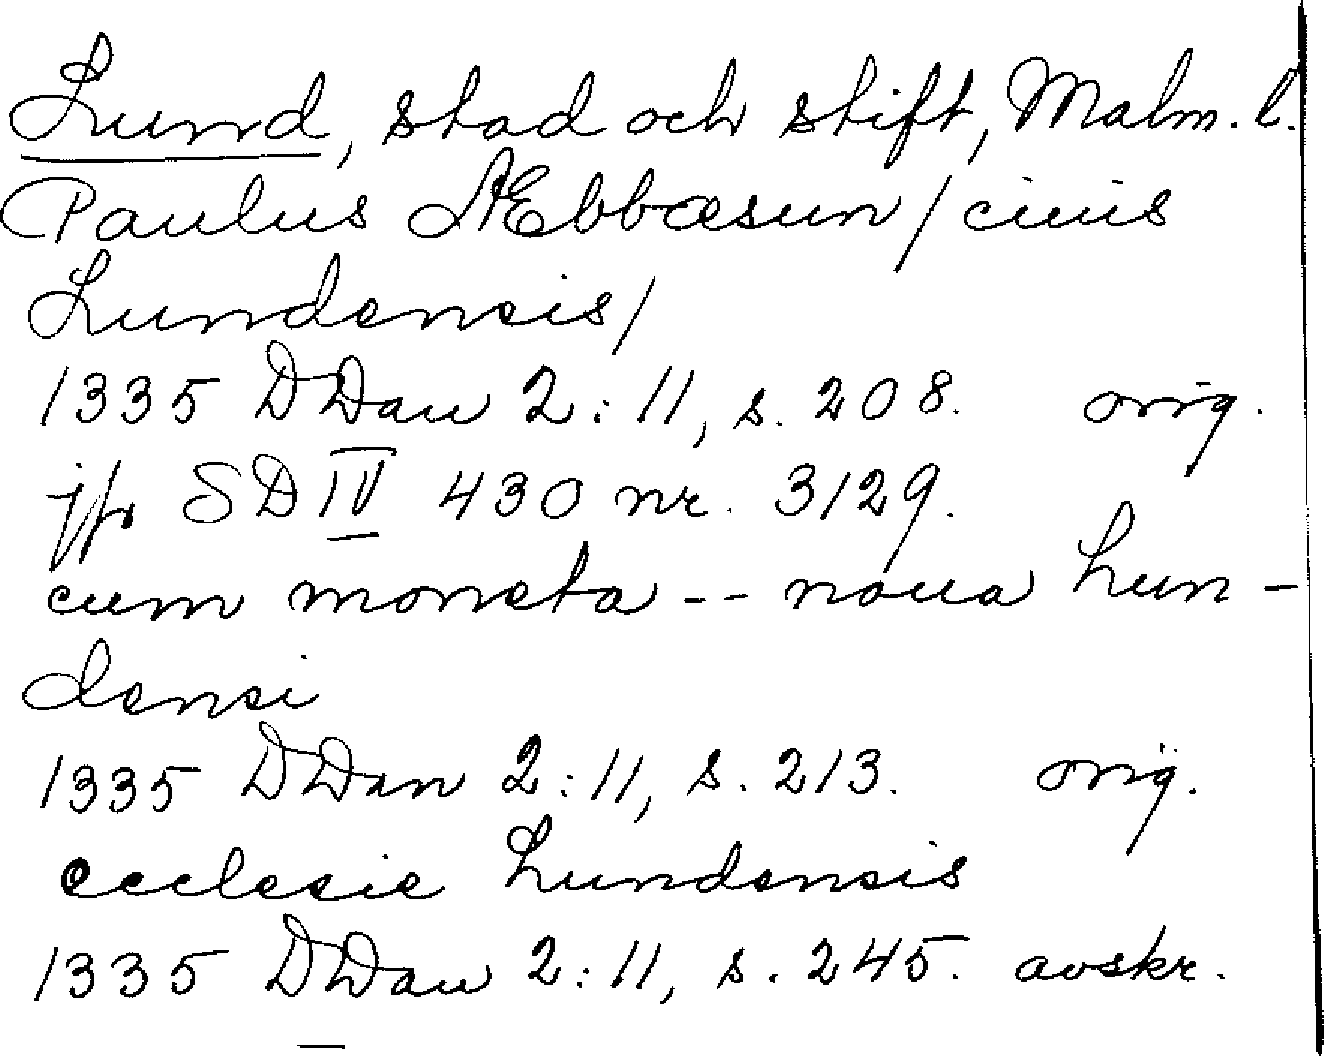 Lund, stad och stift, Malm. l.
Paulus Æbbæsun / ciuis
Lundensis /
1335 DDan 2:11, s. 208. orig.
jfr SD IV 430 nr. 3129.
cum moneta -- noua Lun-
densi
1335 DDan 2:11, s. 213. orig.
ecclesie Lundensis
1335 DDan 2:11, s. 245. avskr.